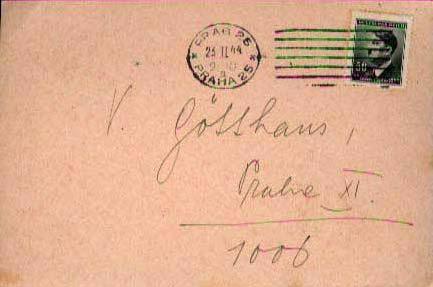 PRAG 25
23.II.44
9-10
PRAHA 25
V. Gotthans,
Prahe XI.
1006